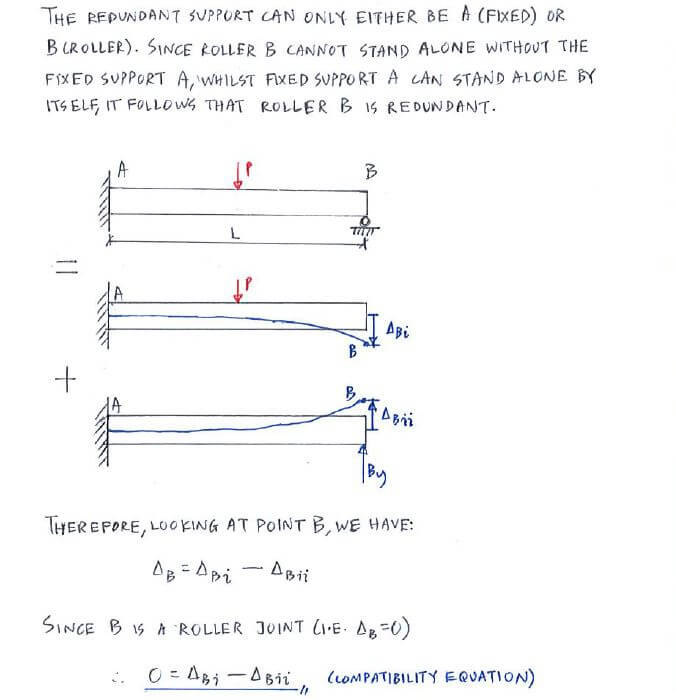 THE REDUNDANT SUPPORT CAN ONLY EITHER BE A (FIXED) OR
B (ROLLER). SINCE ROLLER B CANNOT STAND ALONE WITHOUT THE
FIXED SUPPORT A, WHILST FIXED SUPPORT A CAN STAND ALONE BY
ITSELF, IT FOLLOWS THAT ROLLER B IS REDUNDANT.
A P B
L
=
A P
ΔBi
B
+
B
A ΔBii
By
THEREFORE, LOOKING AT POINT B, WE HAVE:
ΔB = ΔBi − ΔBii
SINCE B IS A ROLLER JOINT (I.E. ΔB=0)
∴ 0 = ΔBi − ΔBii,, (COMPATIBILITY EQUATION)